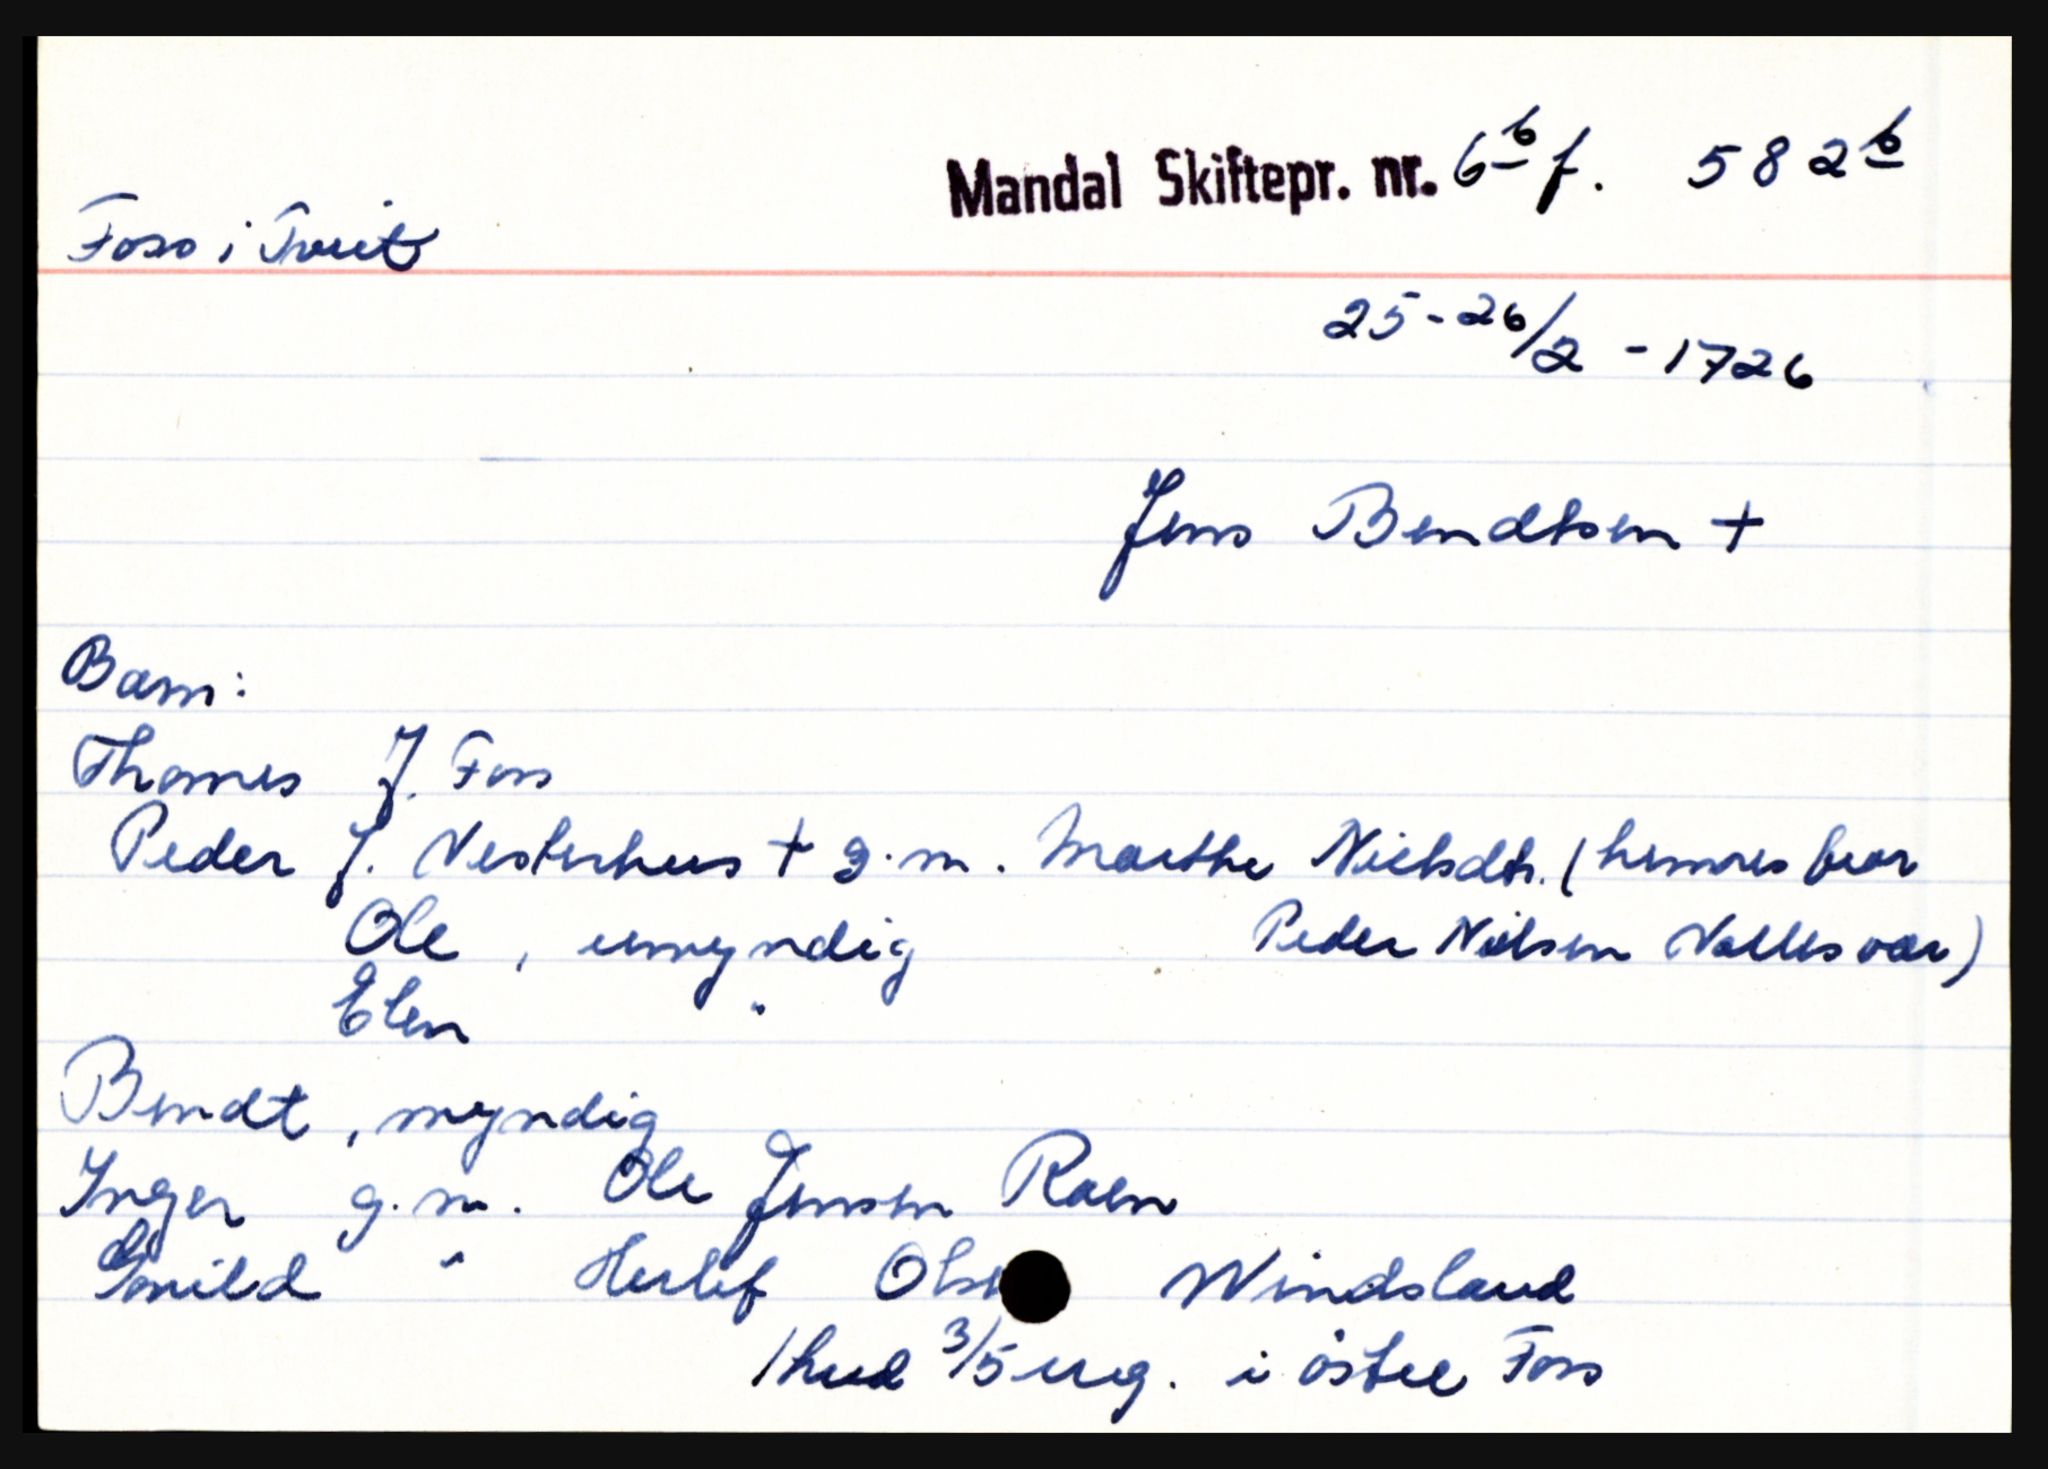 Mandal Skiftepr. nr. 6b f. 582b
Foss i Tveit
25-26/2 - 1726
Jens Bendtsen +
Barn:
Thomes J. Foss
Peder J. Vesterhus + g.m. Marthe Nielsdtr. (hennes bror
Ole, umyndig Peder Nilsen Valles var)
Elen "
Bendt, myndig
Inger g.m. Ole Jensen Roen
Gunild " Herlef Olsen Windsland
1 hud 3/5 eng. i östre Foss